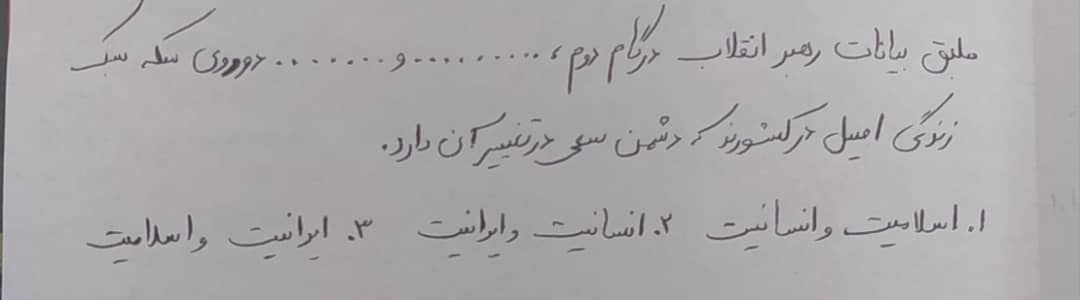 طبق بیانات رهبر انقلاب در گام دوم، .......... و ........ دوروی سکه سبک
زندگی اصیل در کشورند که دشمن سعی در تغییر آن دارد.
۱. اسلامیت و انسانیت ۲. انسانیت و ایرانیت ۳. ایرانیت و اسلامیت